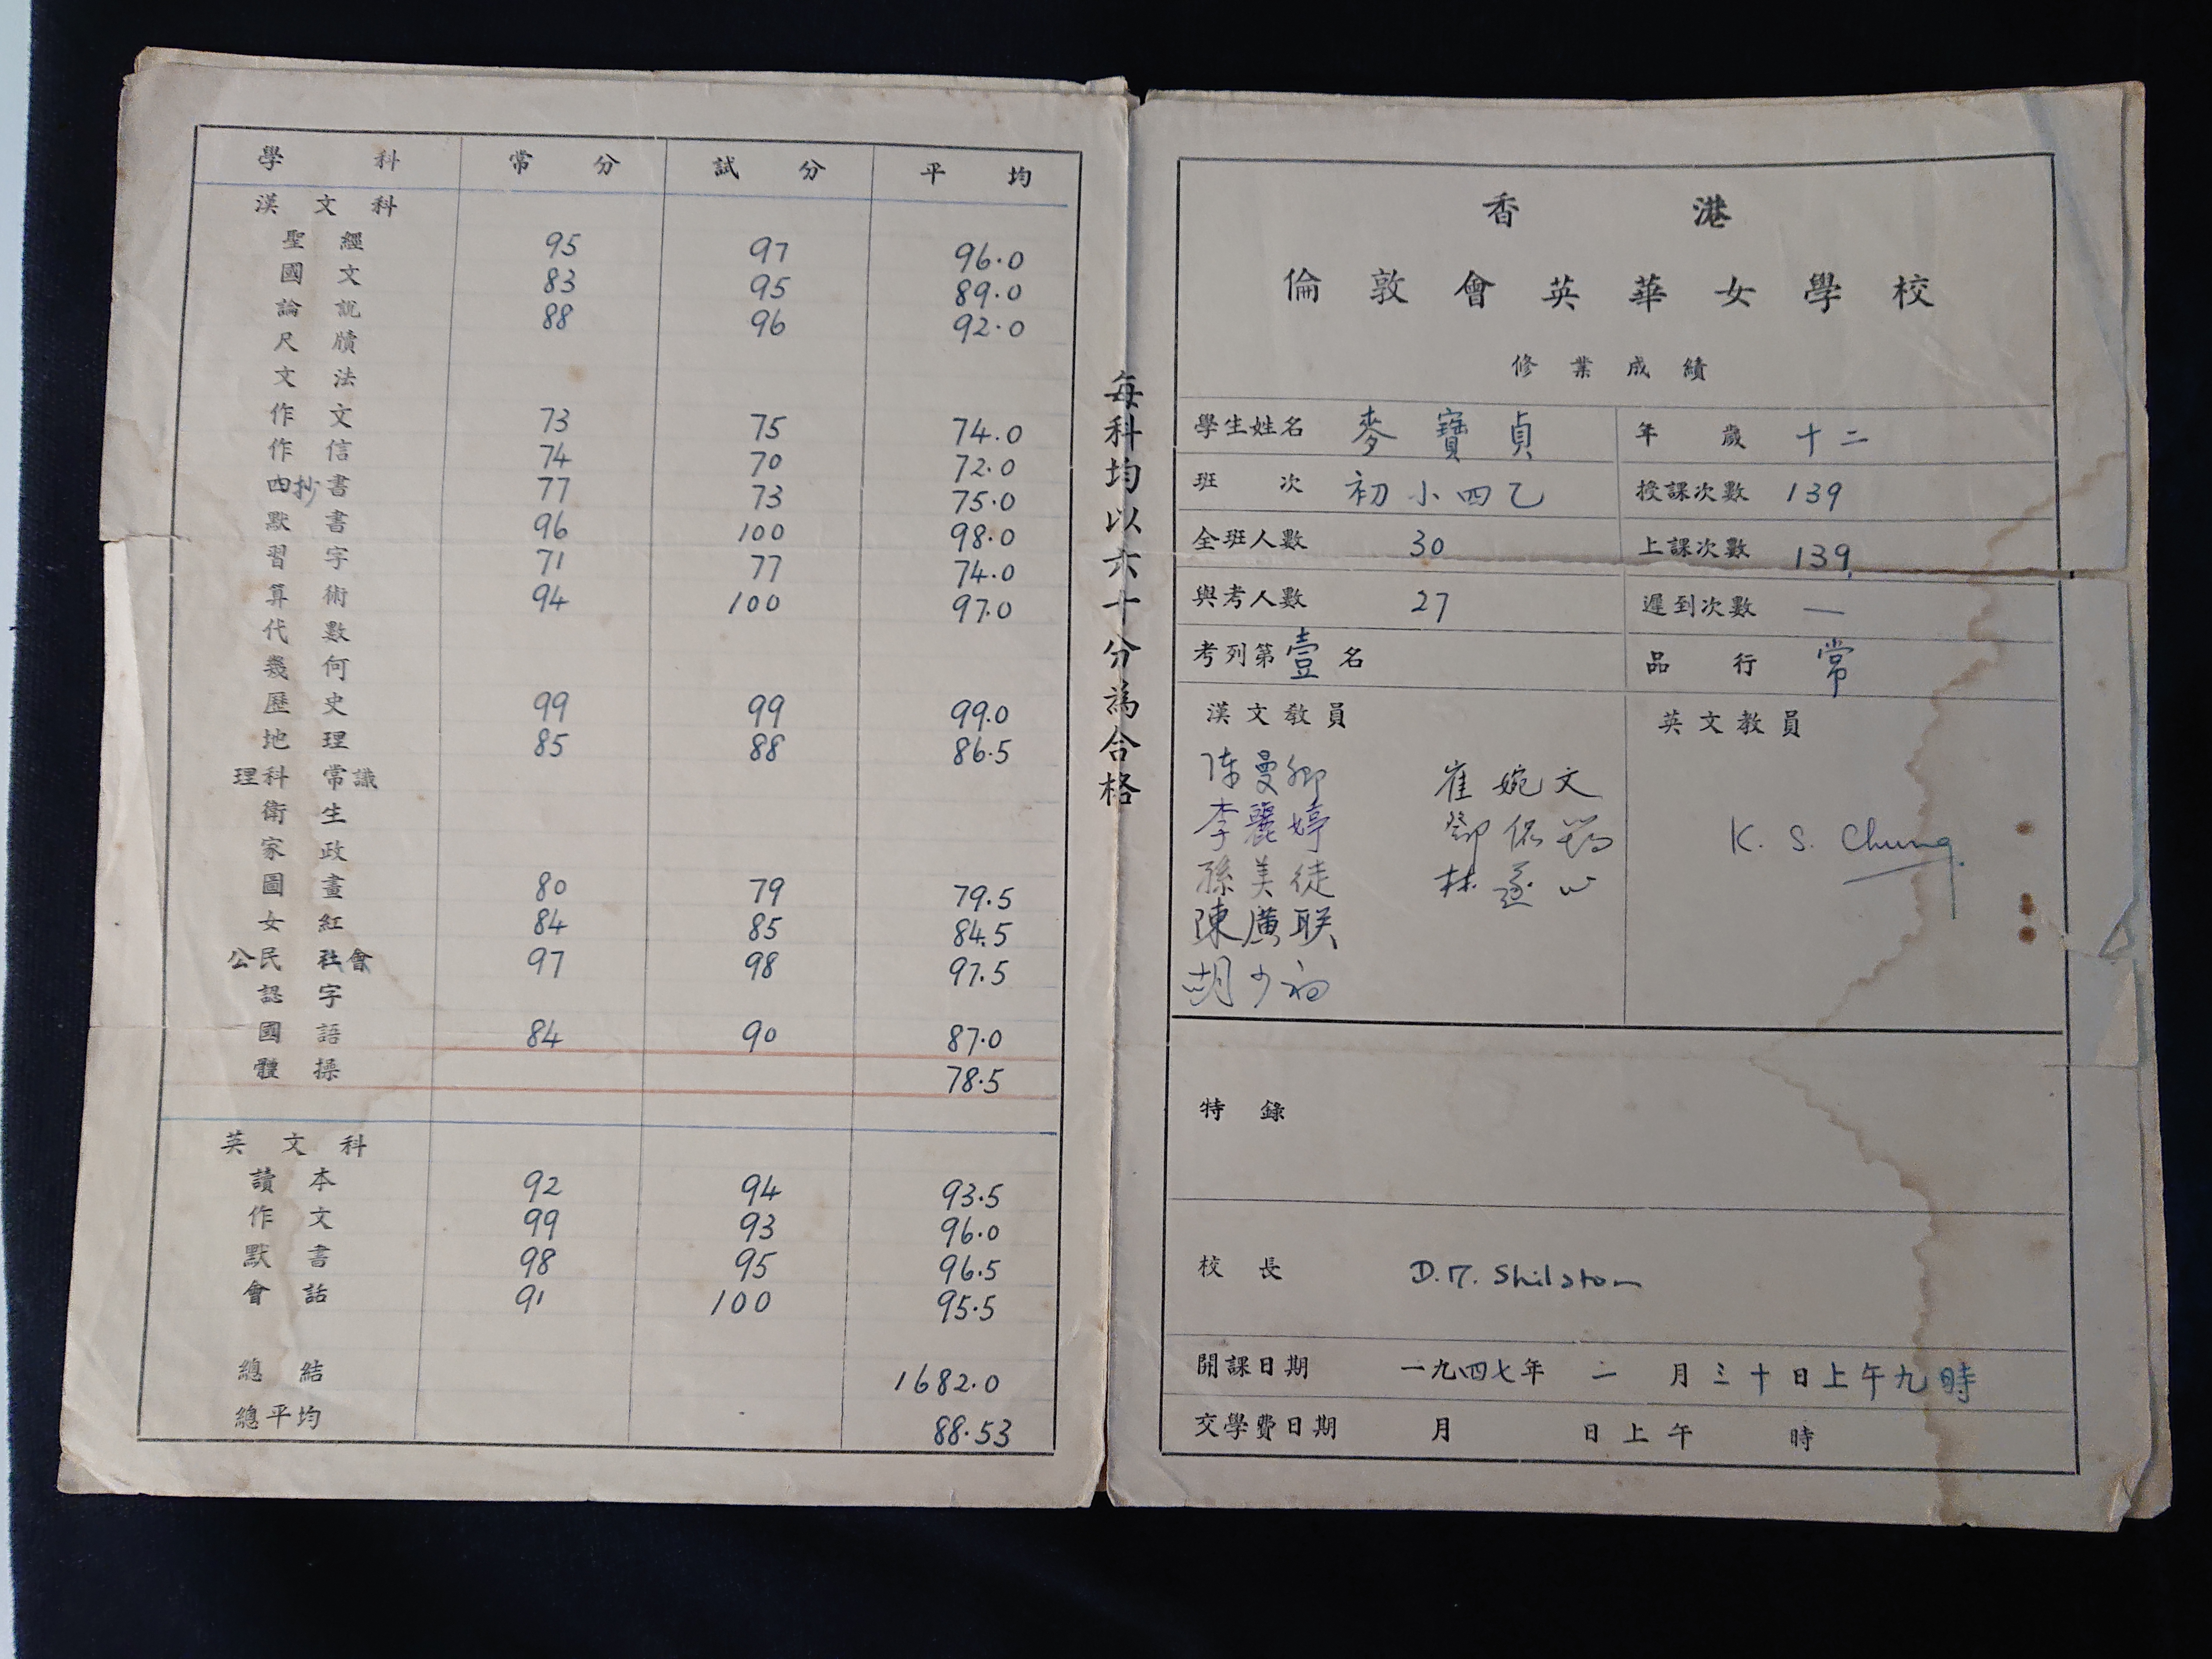 學科 常分 試分 平均
漢文科
聖經 95 97 96.0
國文 83 95 89.0
論說 88 96 92.0
尺牘
文法
作文 73 75 74.0
作信 74 70 72.0
抄書 77 73 75.0
默書 96 100 98.0
習字 71 77 74.0
算術 94 100 97.0
代數
幾何
歷史 99 99 99.0
地理 85 88 86.5
理科 常識
衛生
家政
圖畫 80 79 79.5
女紅 84 85 84.5
公民 社會 97 98 97.5
認字
國語 84 90 87.0
體操 78.5
英文科
讀本 92 94 93.5
作文 99 93 96.0
默書 98 95 96.5
會話 91 100 95.5
總結 1682.0
總平均 88.53
每科均以六十分為合格
香港
倫敦會英華女學校
修業成績
學生姓名 麥寶貞 年歲 十二
班次 初小四乙 授課次數 139
全班人數 30 上課次數 139
與考人數 27 遲到次數 —
考列第壹名 品行 常
漢文教員 英文教員
陳曼卿 崔婉文
李麗婷
孫美徒 林
陳廣联
胡少
K. S. Chung
特錄
校長 D. M. Shilston
開課日期 一九四七年 二月三十日上午九時
交學費日期 月 日上午 時